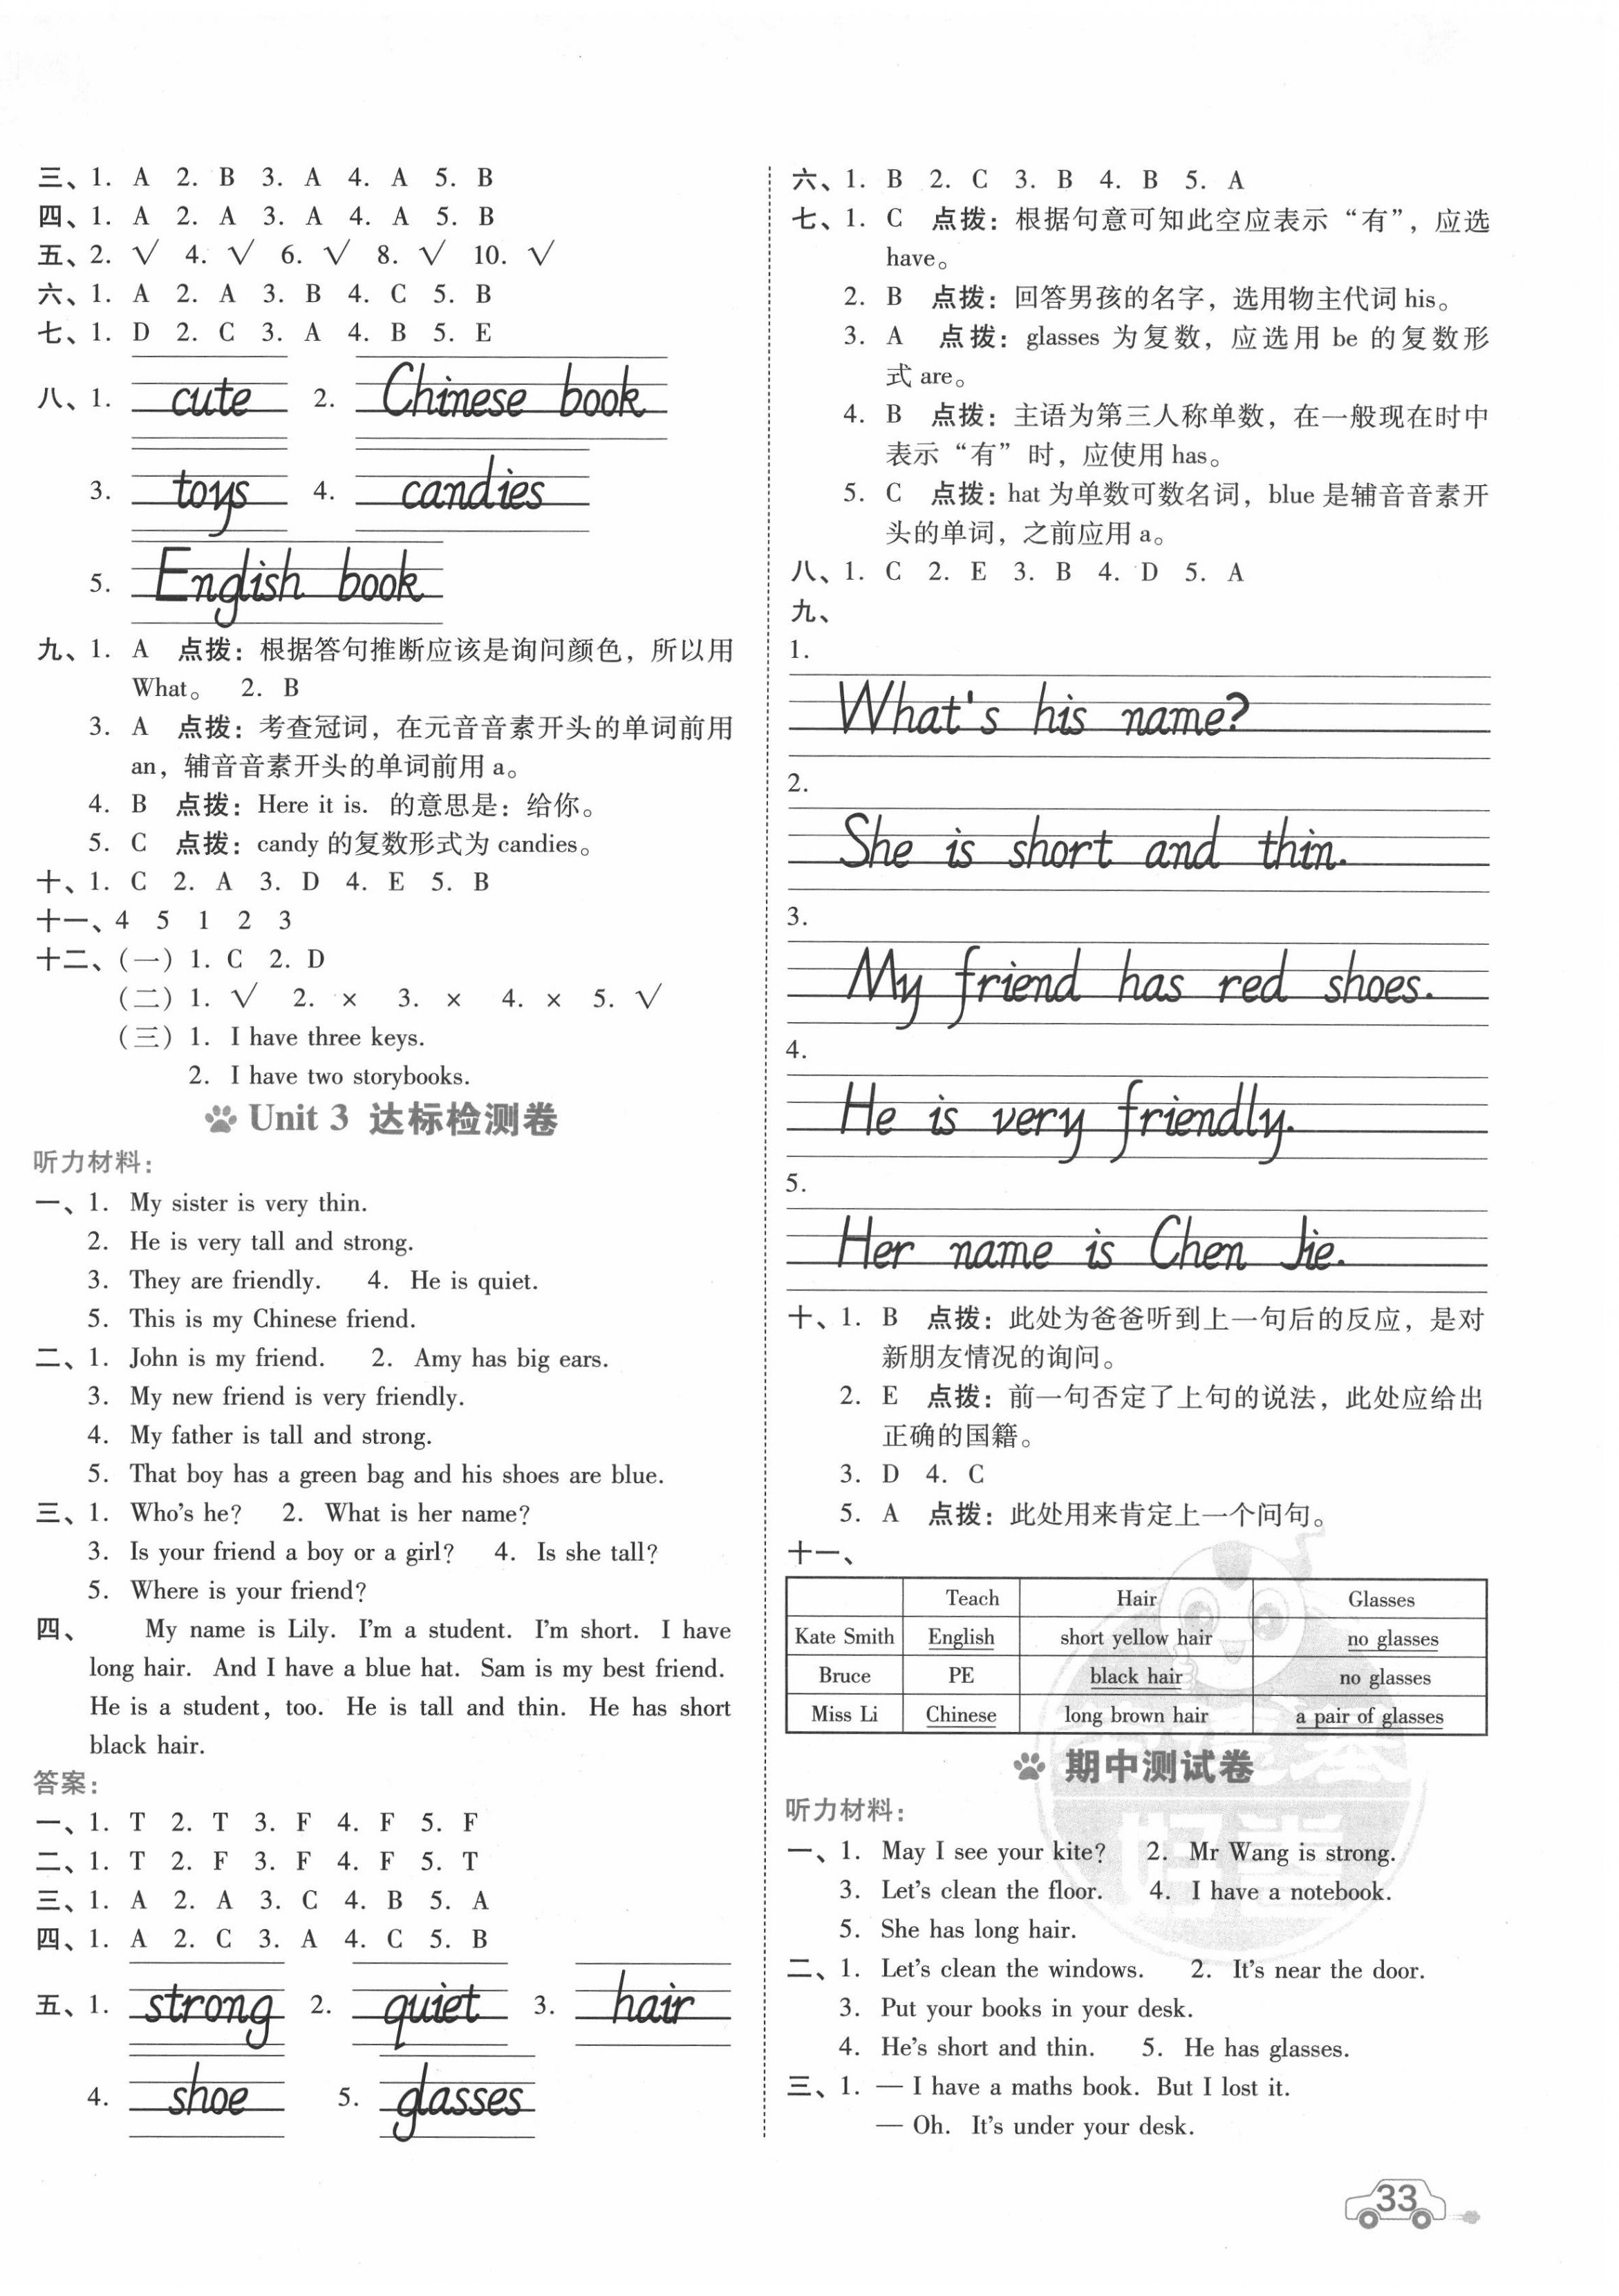 三、1. A 2. B 3. A 4. A 5. B
四、1. A 2. A 3. A 4. A 5. B
五、2. √ 4. √ 6. √ 8. √ 10. √
六、1. A 2. A 3. B 4. C 5. B
七、1. D 2. C 3. A 4. B 5. E
八、1. cute 2. Chinese book
3. toys 4. candies
5. English book
九、1. A 点拨：根据答句推断应该是询问颜色，所以用
What。 2. B
3. A 点拨：考查冠词，在元音音素开头的单词前用
an，辅音音素开头的单词前用 a。
4. B 点拨：Here it is. 的意思是：给你。
5. C 点拨：candy 的复数形式为 candies。
十、1. C 2. A 3. D 4. E 5. B
十一、4 5 1 2 3
十二、（一）1. C 2. D
（二）1. √ 2. × 3. × 4. × 5. √
（三）1. I have three keys.
2. I have two storybooks.
Unit 3 达标检测卷
听力材料：
一、1. My sister is very thin.
2. He is very tall and strong.
3. They are friendly. 4. He is quiet.
5. This is my Chinese friend.
二、1. John is my friend. 2. Amy has big ears.
3. My new friend is very friendly.
4. My father is tall and strong.
5. That boy has a green bag and his shoes are blue.
三、1. Who's he? 2. What is her name?
3. Is your friend a boy or a girl? 4. Is she tall?
5. Where is your friend?
四、 My name is Lily. I'm a student. I'm short. I have
long hair. And I have a blue hat. Sam is my best friend.
He is a student, too. He is tall and thin. He has short
black hair.
答案：
一、1. T 2. T 3. F 4. F 5. F
二、1. T 2. F 3. F 4. F 5. T
三、1. A 2. A 3. C 4. B 5. A
四、1. A 2. C 3. A 4. C 5. B
五、1. strong 2. quiet 3. hair
4. shoe 5. glasses
六、1. B 2. C 3. B 4. B 5. A
七、1. C 点拨：根据句意可知此空应表示“有”，应选
have。
2. B 点拨：回答男孩的名字，选用物主代词 his。
3. A 点拨：glasses 为复数，应选用 be 的复数形
式 are。
4. B 点拨：主语为第三人称单数，在一般现在时中
表示“有”时，应使用 has。
5. C 点拨：hat 为单数可数名词，blue 是辅音音素开
头的单词，之前应用 a。
八、1. C 2. E 3. B 4. D 5. A
九、
1.
What's his name?
2.
She is short and thin.
3.
My friend has red shoes.
4.
He is very friendly.
5.
Her name is Chen Jie.
十、1. B 点拨：此处为爸爸听到上一句后的反应，是对
新朋友情况的询问。
2. E 点拨：前一句否定了上句的说法，此处应给出
正确的国籍。
3. D 4. C
5. A 点拨：此处用来肯定上一个问句。
十一、
Teach Hair Glasses
Kate Smith English short yellow hair no glasses
Bruce PE black hair no glasses
Miss Li Chinese long brown hair a pair of glasses
期中测试卷
听力材料：
一、1. May I see your kite? 2. Mr Wang is strong.
3. Let's clean the floor. 4. I have a notebook.
5. She has long hair.
二、1. Let's clean the windows. 2. It's near the door.
3. Put your books in your desk.
4. He's short and thin. 5. He has glasses.
三、1. — I have a maths book. But I lost it.
— Oh. It's under your desk.
33